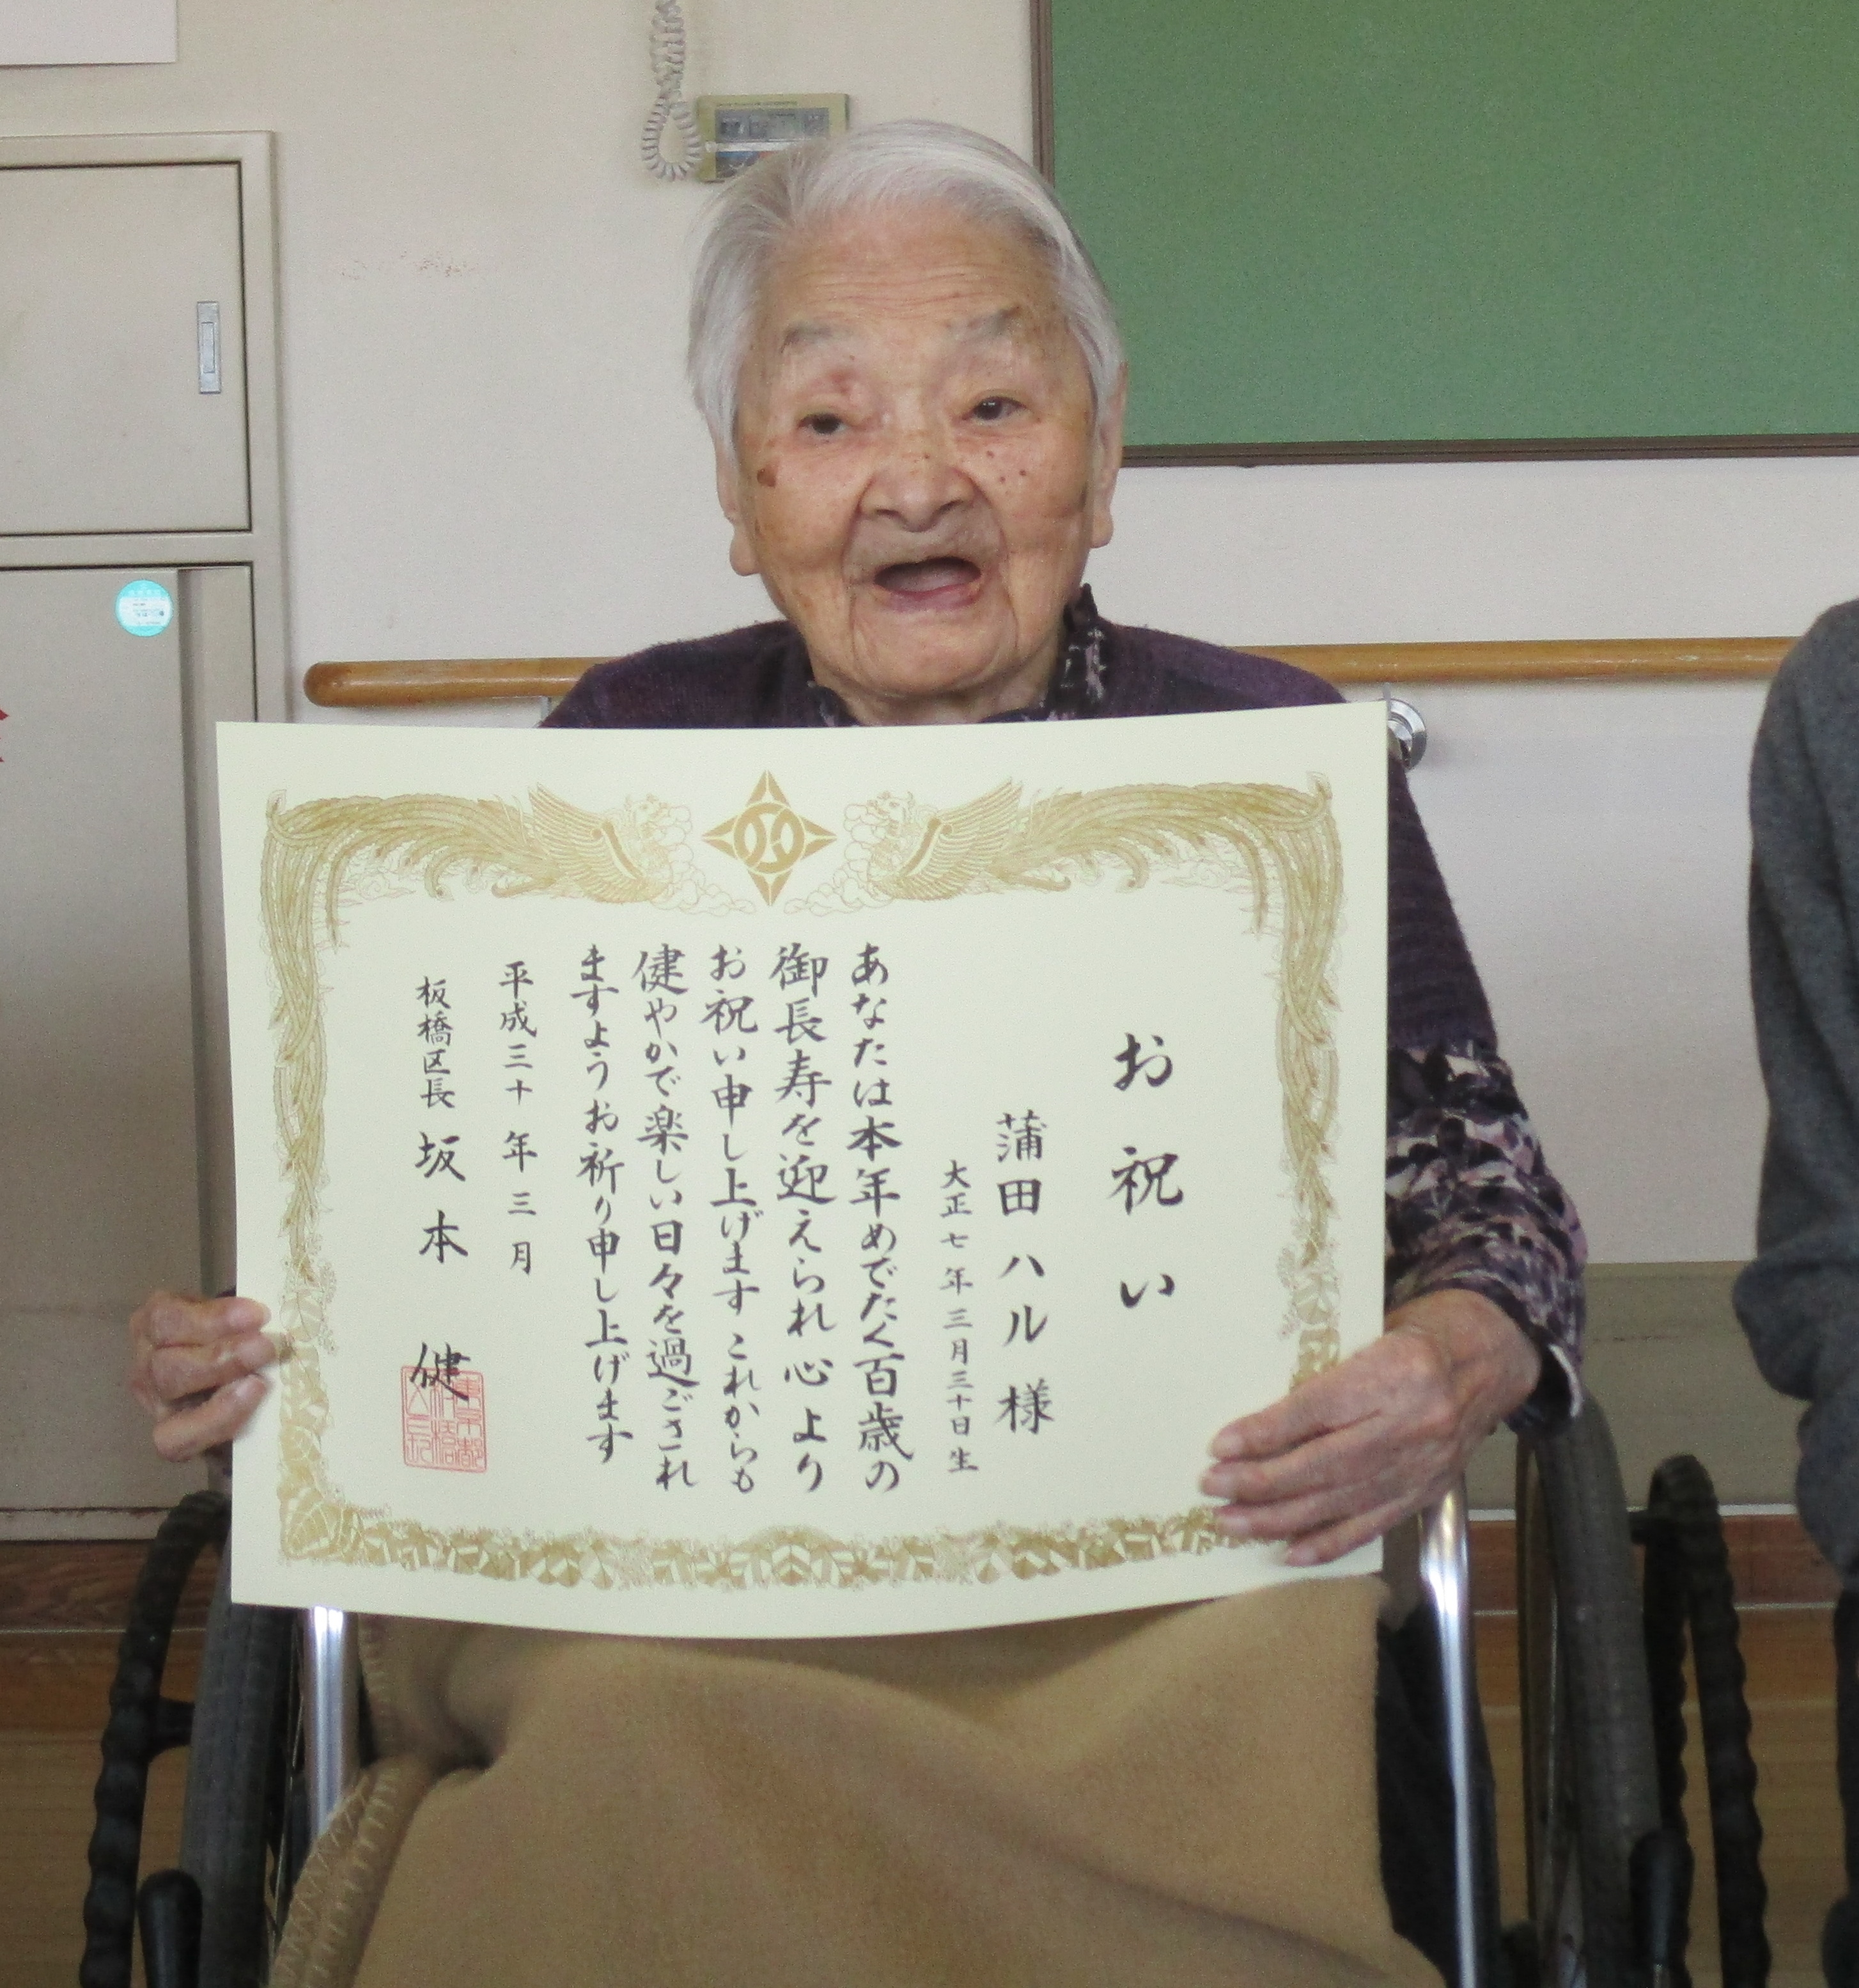 お祝い
蒲田ハル様
大正七年三月三十日生
あなたは本年めでたく百歳の
御長寿を迎えられ心より
お祝い申し上げますこれからも
健やかで楽しい日々を過ごされ
ますようお祈り申し上げます
平成三十年三月
板橋区長 坂本 健